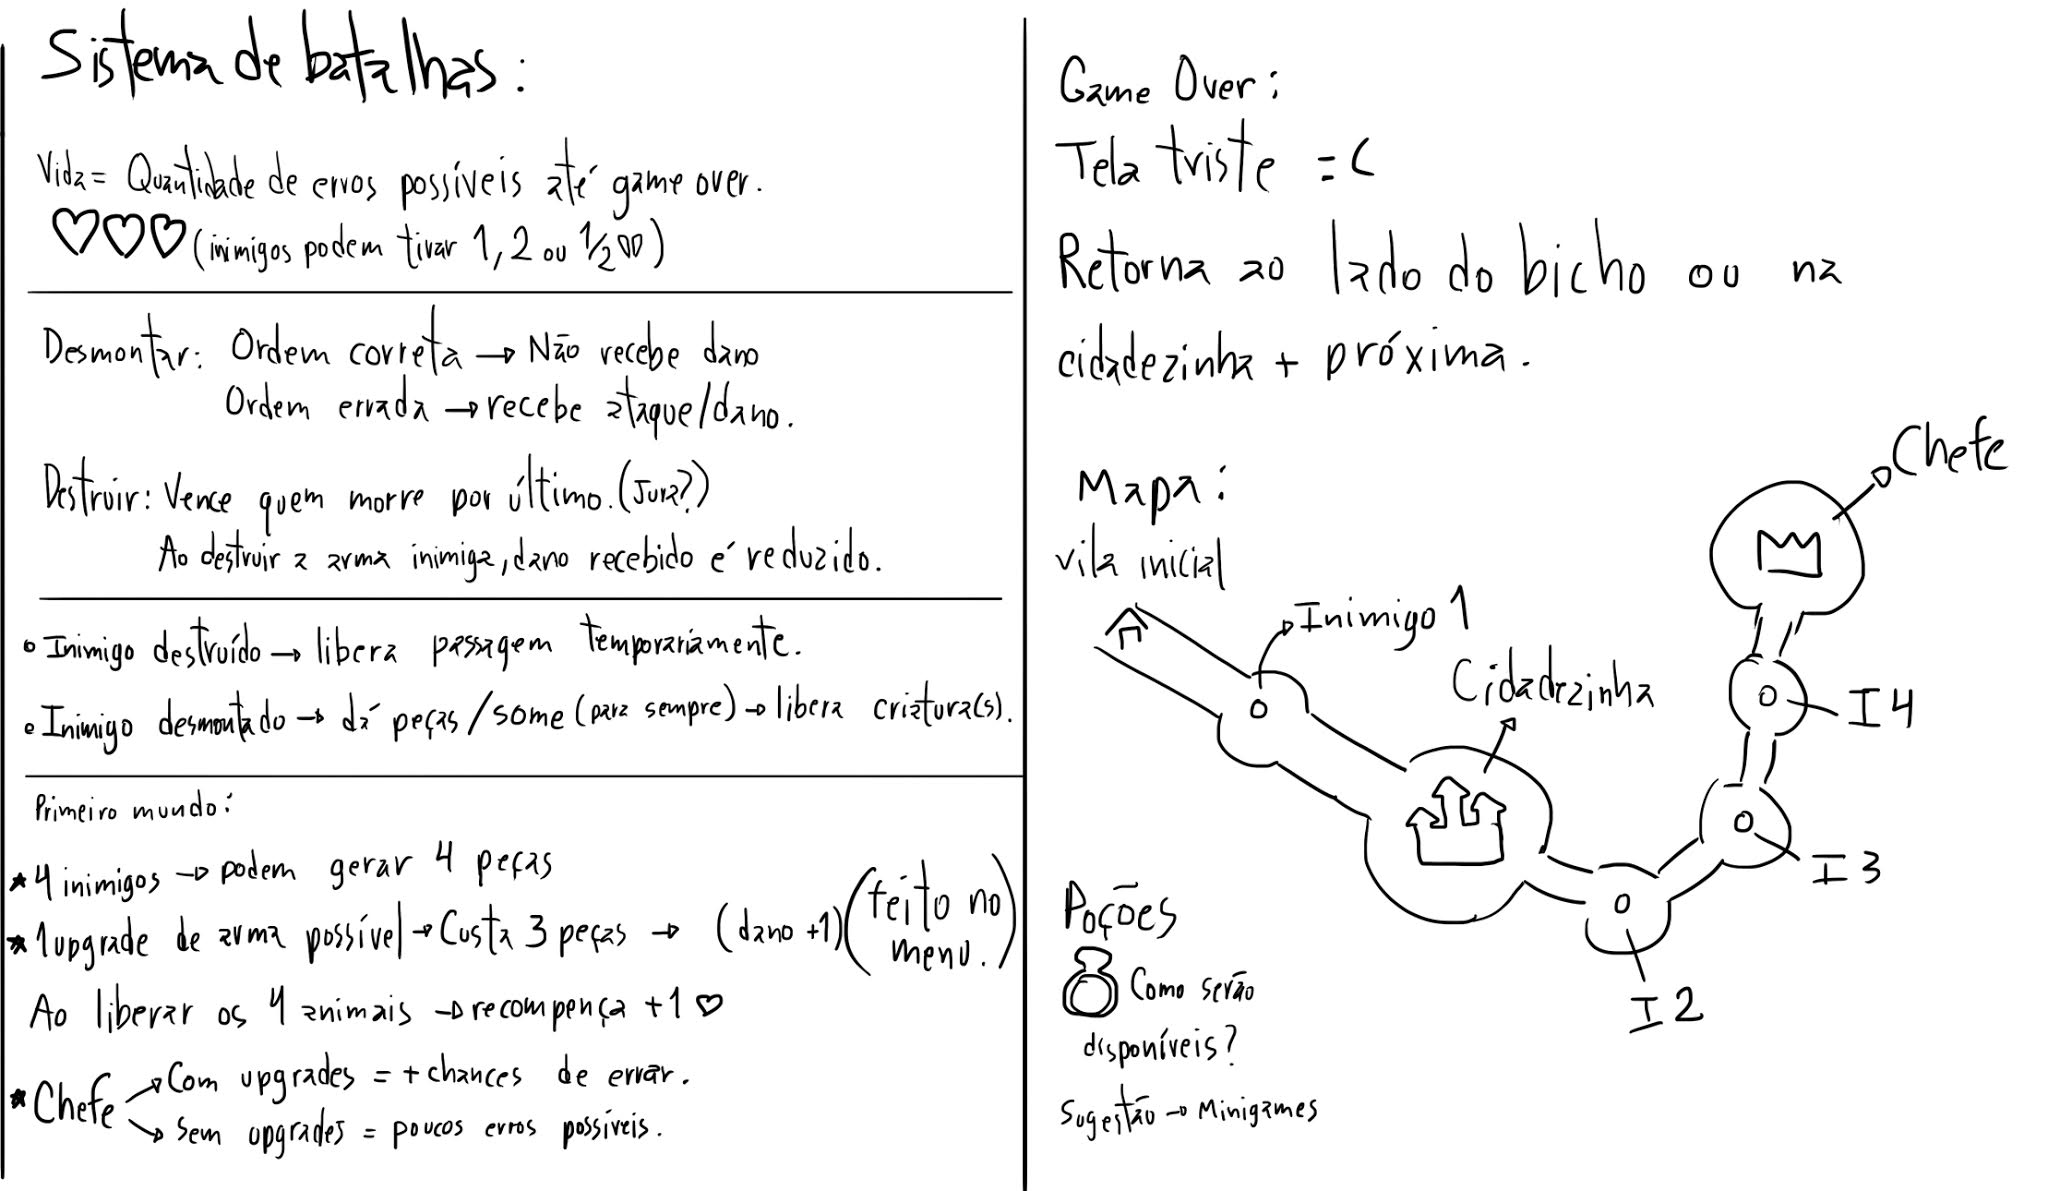 Sistema de batalhas:
Vida = Quantidade de erros possíveis até game over.
♡♡♡ (inimigos podem tirar 1, 2 ou 1/2 ♡)
Desmontar: Ordem correta → Não recebe dano
Ordem errada → recebe ataque/dano.
Destruir: Vence quem morre por último. (Jura?)
Ao destruir a arma inimiga, dano recebido é reduzido.
• Inimigo destruído → libera passagem temporariamente.
• Inimigo desmontado → dá peças/some (para sempre) → libera criatura(s).
Primeiro mundo:
★ 4 inimigos → podem gerar 4 peças
★ 1 upgrade de arma possível → Custa 3 peças → (dano +1) (feito no
menu.)
Ao liberar os 4 animais → recompença +1 ♡
★ Chefe → Com upgrades = + chances de errar.
→ Sem upgrades = poucos erros possíveis.
Game Over:
Tela triste =(
Retorna ao lado do bicho ou na
cidadezinha + próxima.
Mapa:
vila inicial
Inimigo 1
Cidadezinha
I2
I3
I4
Chefe
Poções
Como serão
disponíveis?
Sugestão → Minigames